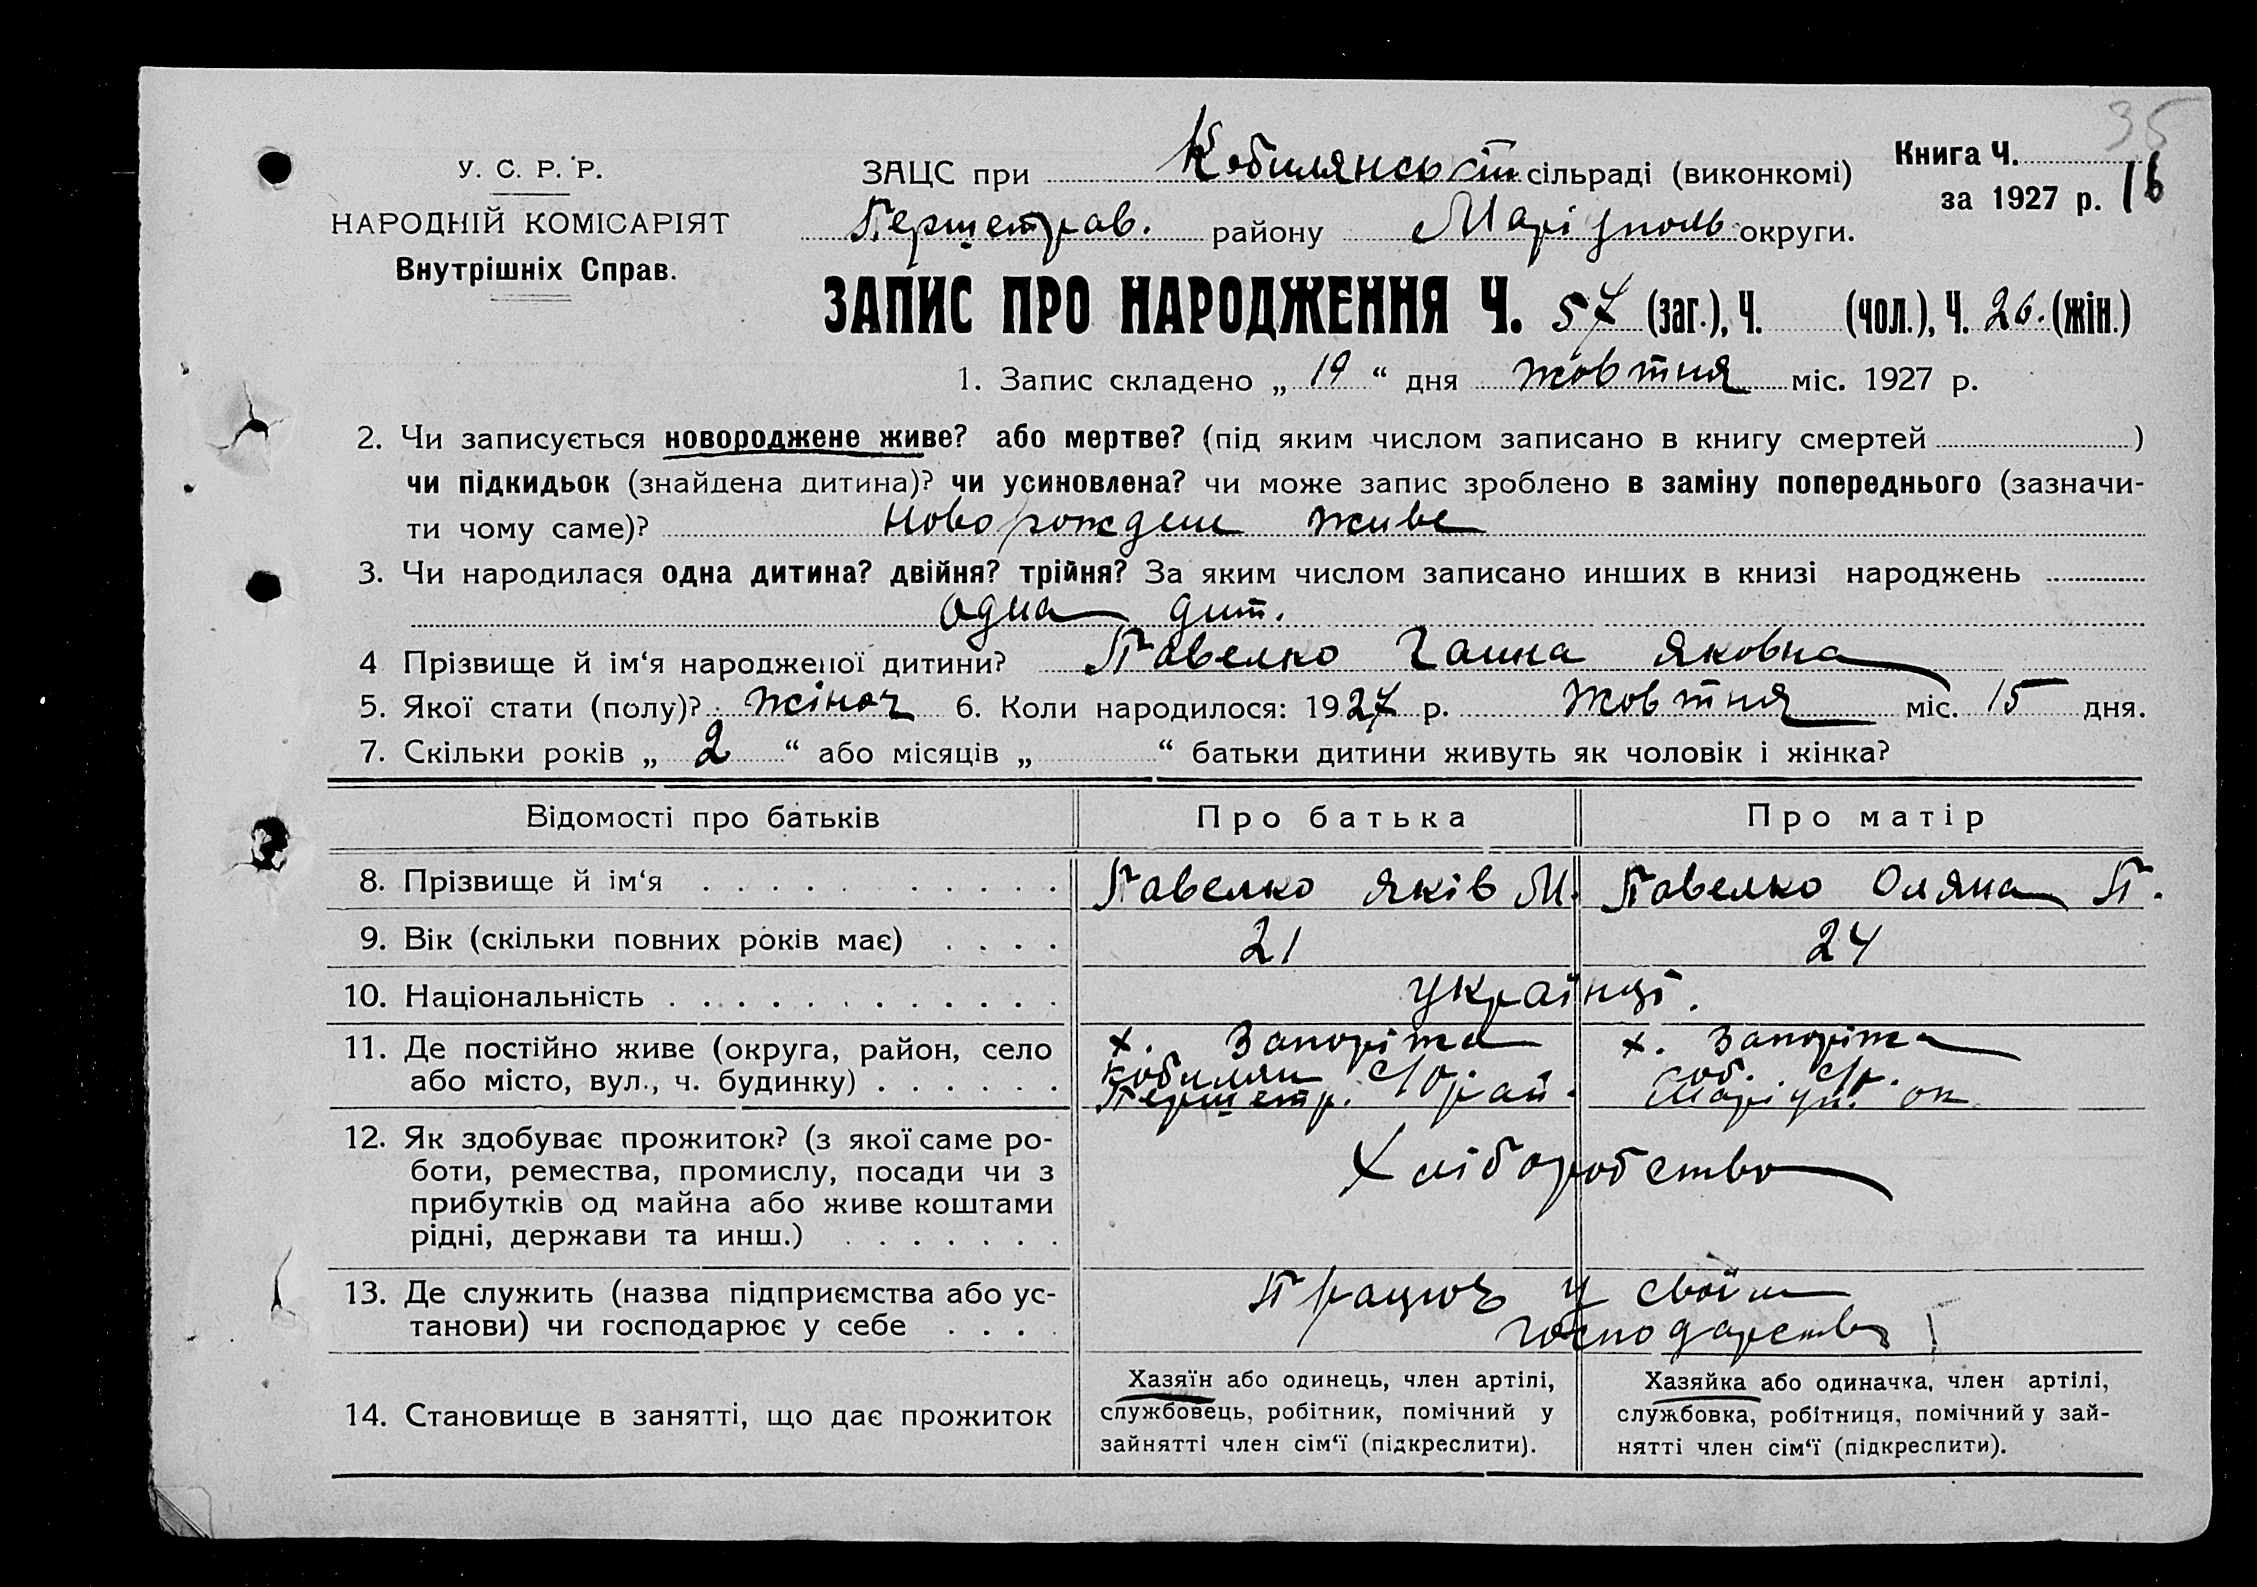 35
У. С. Р. Р.
НАРОДНІЙ КОМІСАРІЯТ
Внутрішніх Справ.
ЗАЦС при Кобилянській сільраді (виконкомі)
Першетрав. району Маріуполь округи.
Книга Ч.
за 1927 р. 16
ЗАПИС ПРО НАРОДЖЕННЯ Ч. 57 (заг.), Ч. (чол.), Ч. 26. (жін.)
1. Запис складено „ 19 “ дня жовтня міс. 1927 р.
2. Чи записується новороджене живе? або мертве? (під яким числом записано в книгу смертей )
чи підкидьок (знайдена дитина)? чи усиновлена? чи може запис зроблено в заміну попереднього (зазначи-
ти чому саме)? Новорожден живе
3. Чи народилася одна дитина? двійня? трійня? За яким числом записано инших в книзі народжень
одна дит.
4 Прізвище й ім‘я народженої дитини? Павелко Ганна Яковна
5. Якої стати (полу)? жіноч 6. Коли народилося: 1927 р. Жовтня міс. 15 дня.
7. Скільки років „ 2 “ або місяців „ “ батьки дитини живуть як чоловік і жінка?
Відомості про батьків Про батька Про матір
8. Прізвище й ім‘я Павелко Яків М. Павелко Оляна П.
9. Вік (скільки повних років має) 21 24
10. Національність українці.
11. Де постійно живе (округа, район, село х. Запоріжа х. Запоріжа
або місто, вул., ч. будинку) Кобилян с/р. Коб. с/р.
Першетр. рай. Маріуп. ок
12. Як здобуває прожиток? (з якої саме ро-
боти, ремества, промислу, посади чи з Хліборобство
прибутків од майна або живе коштами
рідні, держави та инш.)
13. Де служить (назва підприємства або ус- Працює у своїм
танови) чи господарює у себе господарстві
14. Становище в занятті, що дає прожиток
Хазяїн або одинець, член артілі,
службовець, робітник, помічний у
зайнятті член сім‘ї (підкреслити).
Хазяйка або одиначка, член артілі,
службовка, робітниця, помічний у зай-
нятті член сім‘ї (підкреслити).